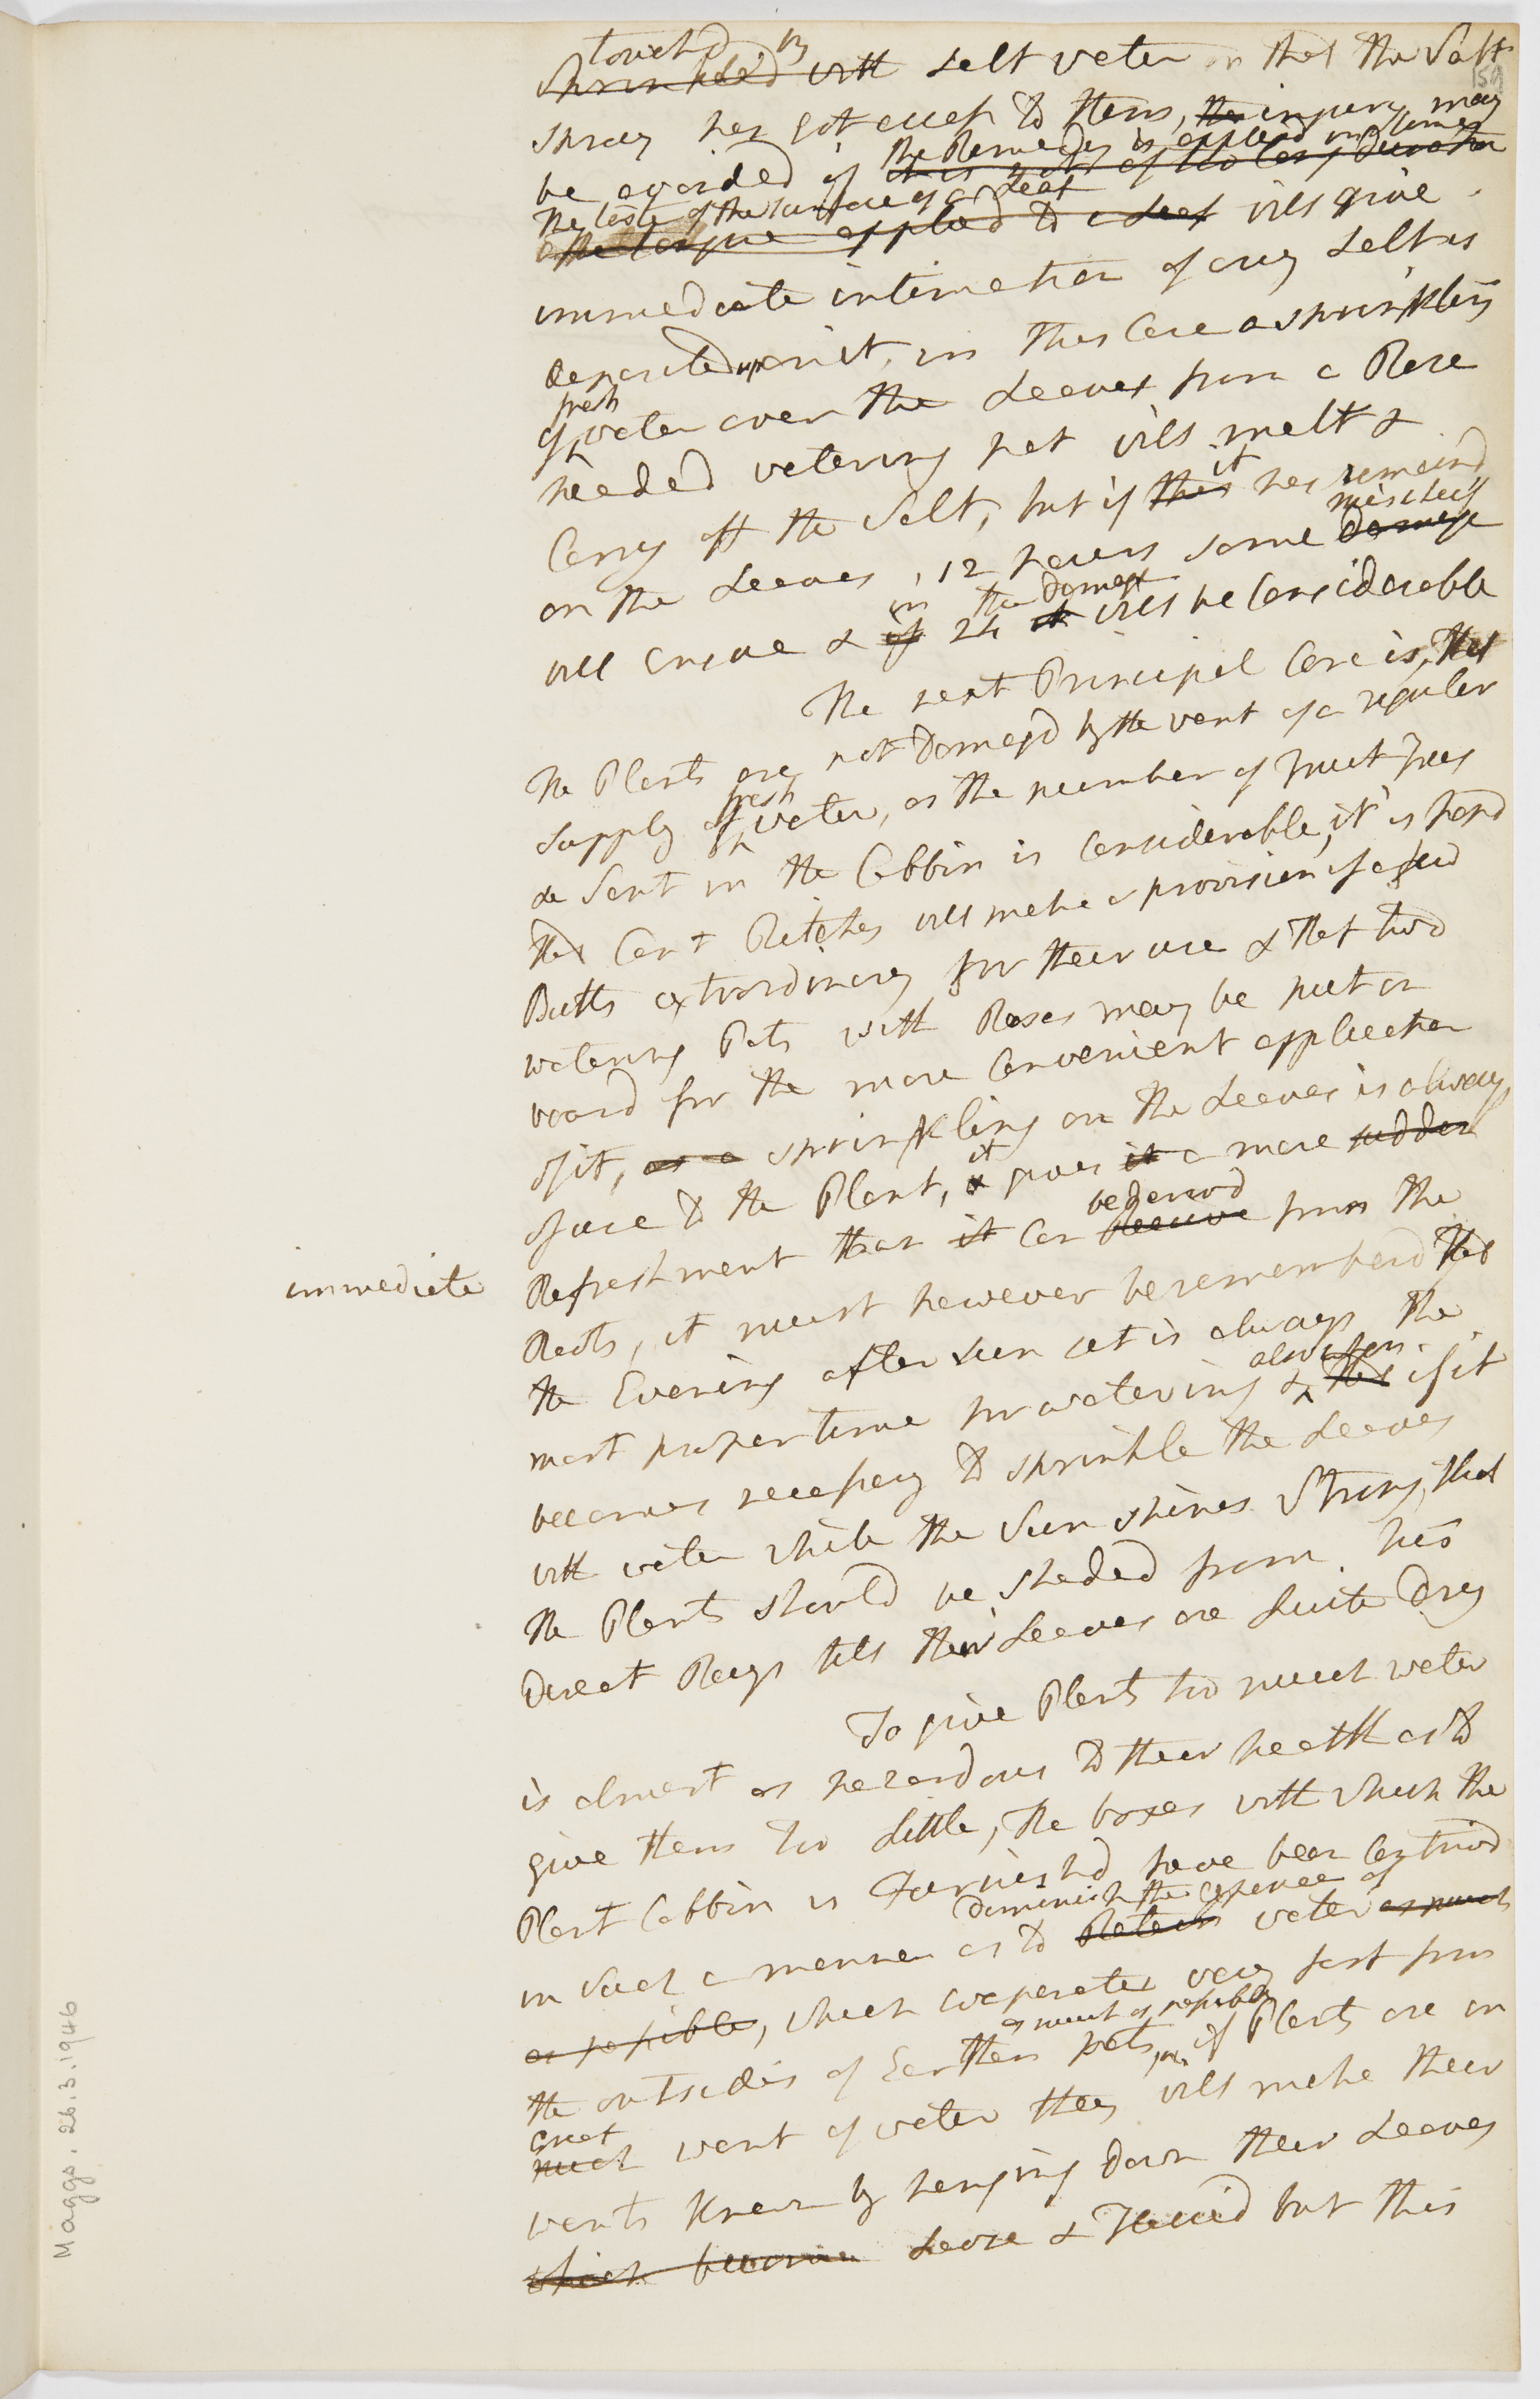 touchd by
Sprinkled with Salt water or that the Salt
159
spray has got access to them, the injury may
the Remedy is applied in time
be avoided if it is not of too long duration
The taste of the surface of a Leaf
the tongue applied to a Leaf will give
immediate intimation of any Salt as
deposited upon it, in this Case a sprinkling
fresh
of water over the Leaves from a Rose
headed watering pot will melt &
it
Carry off the Salt, but if this has remaind
mischeif
on the Leaves, 12 hours some damage
in the Damage
will ensue & if 24 it will be Considerable
The next Principal Care is, that
the Plants are not Damagd by the want of a regular
fresh
supply of water, as the number of Fruit Trees
sent in the Cabbin is Considerable, it is hopd
that Capt Pitches will make a provision of a few
Butts extraordinary for their use & that two
watering Pots with Roses may be put on
board for the more Convenient application
of it, as a sprinkling on the Leaves is always
it
of use to the Plant, & gives it a more sudden
be derivd
Refreshment than it Can Receive from the
immediate
Roots, it must however be rememberd that
the Evening after Sun set is always the
also when
most proper time for watering & that if it
becomes necessary to sprinkle the Leaves
with water while the Sun shines Strong, that
the Plants should be shaded from his
Direct Rays till their Leaves are Quite Dry
To give Plants too much water
is almost as hazardous to their health as to
give them too Little, the boxes with which the
Plant Cabbin is Furnishd have been Contrivd
Diminish the expence of
in such a manner as to Retain water as much
as possible, which evaporates very fast from
as much as possible
the outsides of Earthen pots, if Plants are in
great
much want of water they will make their
wants Known by hanging down their Leaves
which become Loose & Flaccid but this
Maggs, 26.3.1946